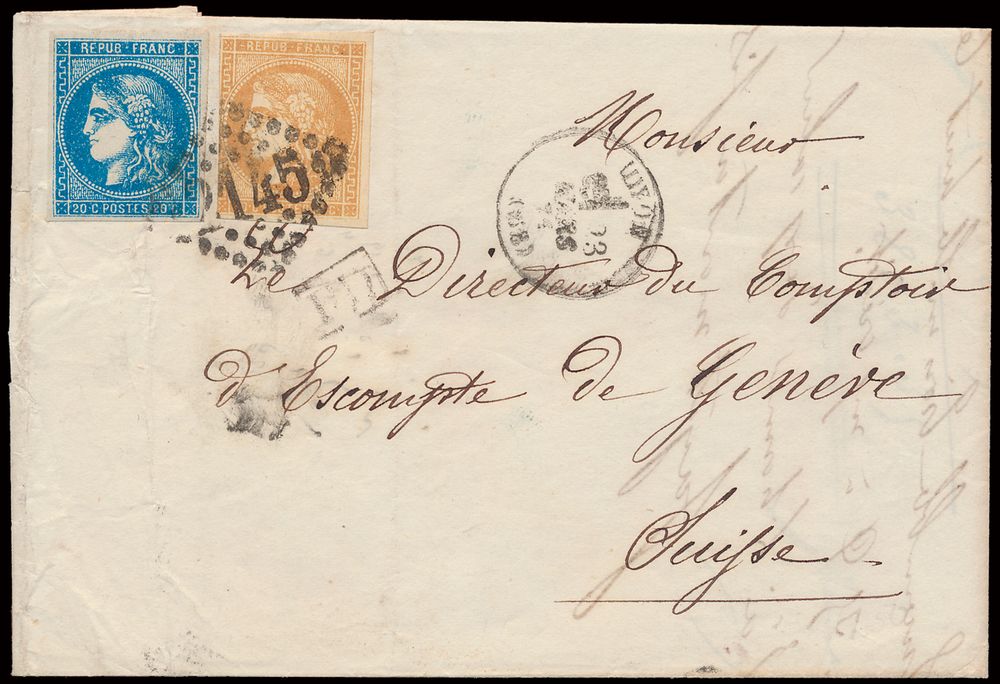 REPUB · FRANC
REPUB · FRANC
20 · C POSTES 20 · C
2145
23
MARS
(68)
PD
Monsieur
Le Directeur du Comptoir
d'Escompte de Genève
Suisse